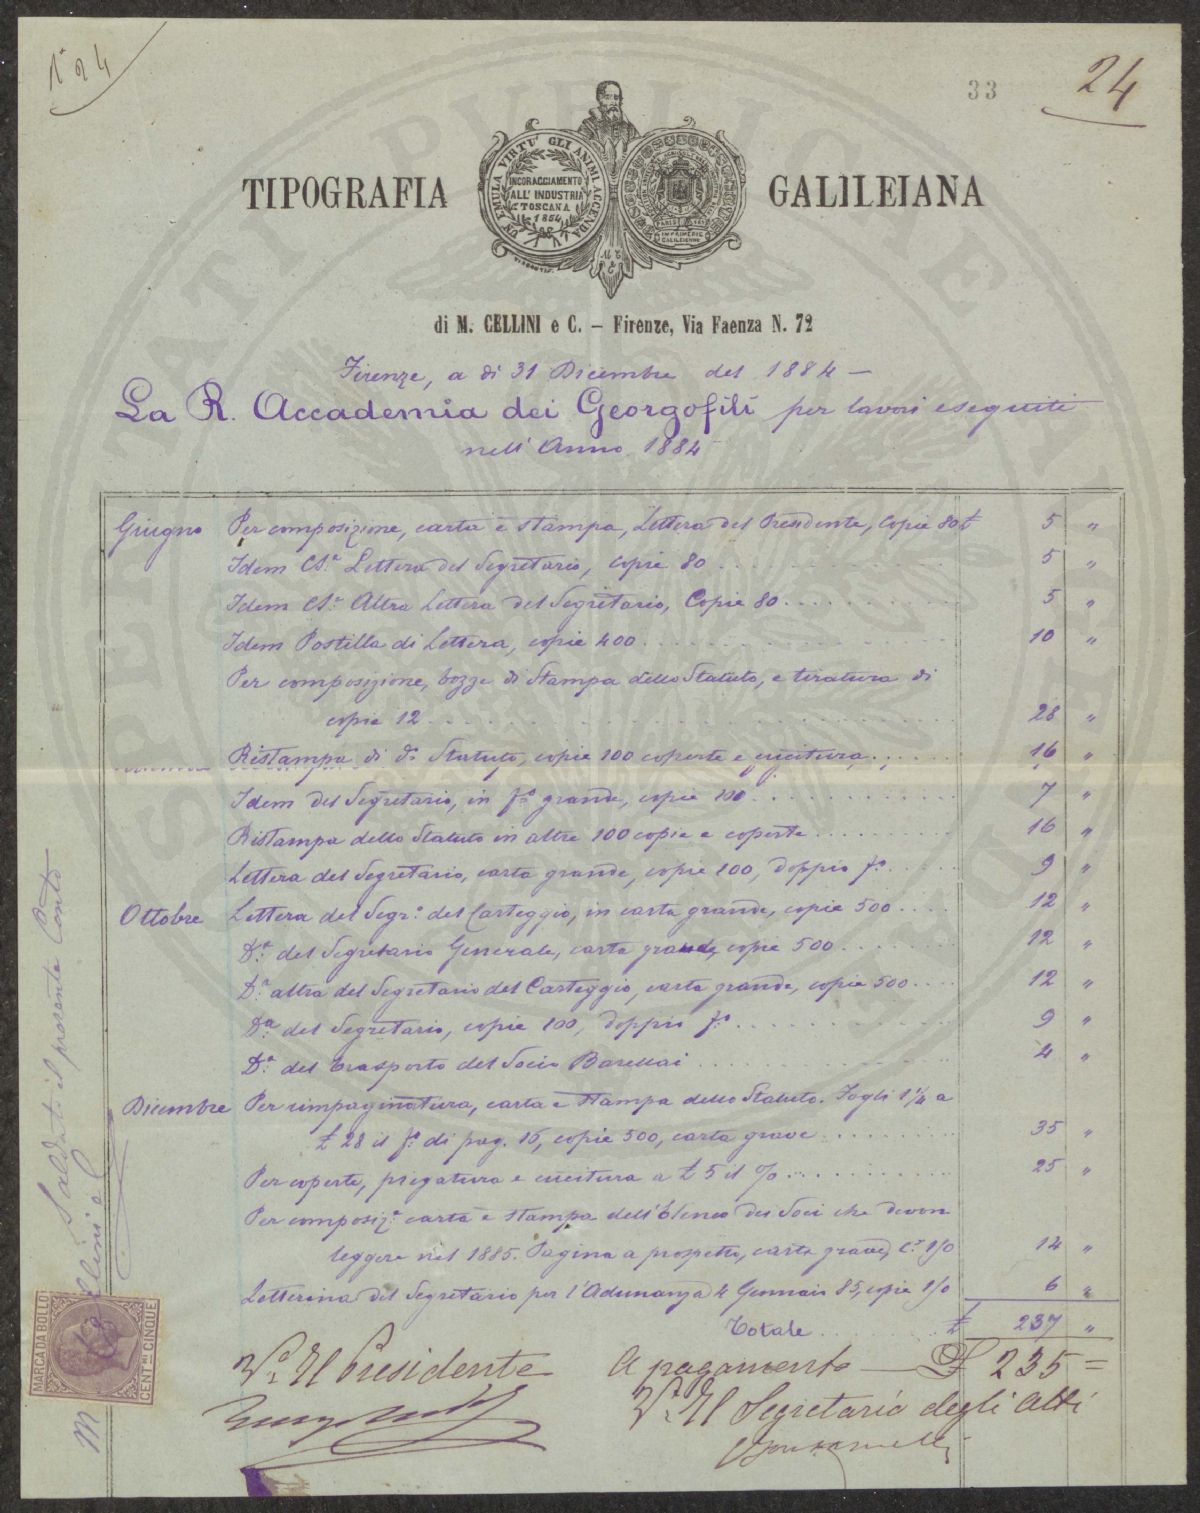 N° 24
33
24
UN EMULA VIRTU' GLI ANIMI ACCENDA
INCORAGGIAMENTO
ALL' INDUSTRIA
TOSCANA
1854
IMPRIMERIE
GALILEIENNE
TIPOGRAFIA GALILEIANA
di M. CELLINI e C. – Firenze, Via Faenza N. 72
Firenze, a dì 31 Dicembre del 1884 —
La R. Accademia dei Georgofili per lavori eseguiti
nell' Anno 1884
Giugno Per composizione, carta e stampa, Lettera del Presidente, Copie 80 £ 5 "
Idem Cs.ª Lettera del Segretario, copie 80 . . . 5 "
Idem Cs.ª Altra Lettera del Segretario, Copie 80 . . . 5 "
Idem Postilla di Lettera, copie 400 . . . 10 "
Per composizione, bozze di Stampa dello Statuto, e tiratura di
copie 12 . . . 28 "
Ristampa di d.° Statuto, copie 100 coperte e cucitura . . . 16 "
Idem del Segretario, in f.° grande, copie 100 . . . 7 "
Ristampa dello Statuto in altre 100 copie e coperte . . . 16 "
Lettera del Segretario, carta grande, copie 100, doppio f.° . . . 9 "
Ottobre Lettera del Segr.° del Carteggio, in carta grande, copie 500 . . . 12 "
D.ª del Segretario Generale, carta grande, copie 500 . . . 12 "
D.ª altra del Segretario del Carteggio, carta grande, copie 500 . . . 12 "
D.ª del Segretario, copie 100, doppio f.° . . . 9 "
D.ª del trasporto del Socio Barellai . . . 4 "
Dicembre Per rimpaginatura, carta e stampa dello Statuto. Fogli 1 1/4 a
£ 28 il f.° di pag. 16, copie 500, carta grave . . . 35 "
Per coperte, piegatura e cucitura a £ 5 il % . . . 25 "
Per composiz.e carta e stampa dell' Elenco dei Soci che devon
leggere nel 1885. Pagina a prospetto, carta grave, C.e 1/0 14 "
Letterina del Segretario per l'Adunanza 4 Gennaio 85, copie 1/0 6 "
Totale . . . £ 237 "
V.° Il Presidente
A pagamento — £ 235 =
V.° Il Segretario degli Atti
Saldato il presente Conto
M Cellini e C
MARCA DA BOLLO
CENT.MI CINQUE